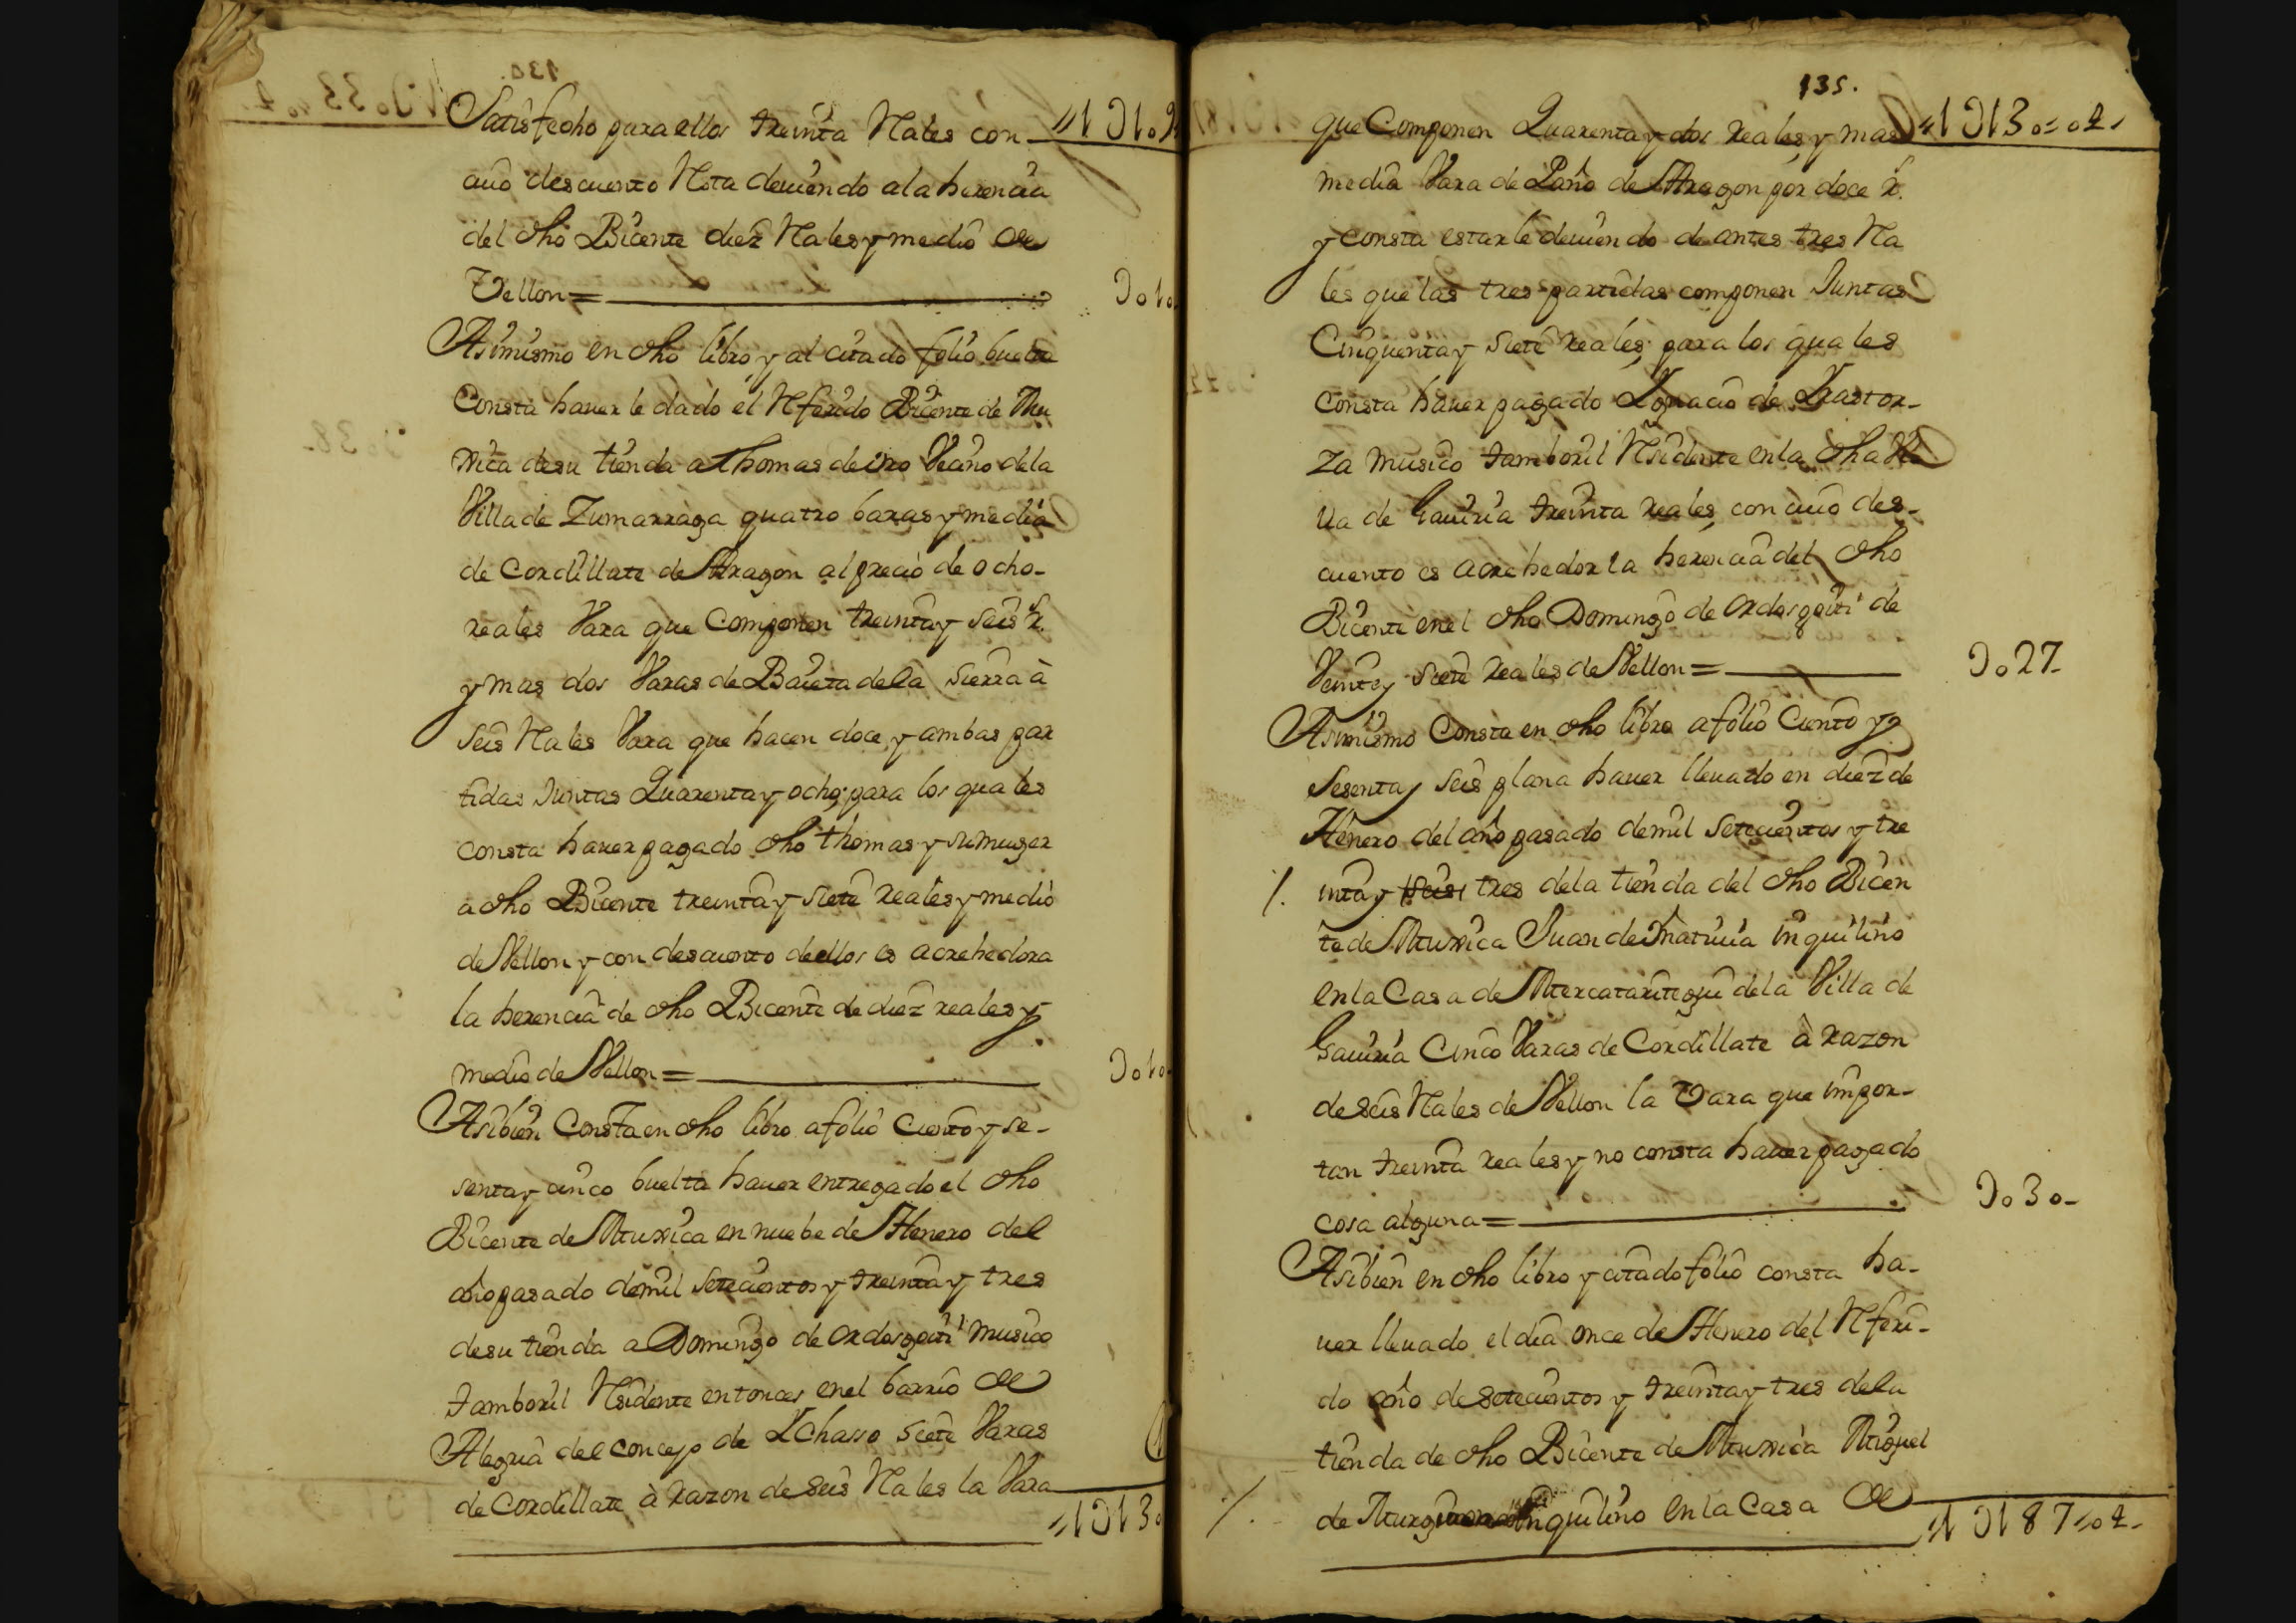 Satisfecho para ellos treinta Rales con
cuio descuento Resta deviendo a la herencia
del dho Bicente diez Rales y medio de
Vellon =
Asimismo en dho libro y al citado folio buelta
Consta haverle dado el Referido Bicente de Mu
xica de su tienda a Thomas de Vecino de la
Villa de Zumarraga quatro baras y media
de Cordillate de Aragon al precio de ocho
reales Vara que Componen treinta y seis Rs.
y mas dos Varas de Baieta de la sierra à
seis Rales Vara que hacen doce, y ambas par
tidas Juntas Quarenta y ocho; para los quales
consta haver pagado dho Thomas y su muger
a dho Bicente treinta y siete reales y medio
de Vellon y con descuento de ellos es acrehedora
la herencia de dho Bicente de diez reales y
medio de Vellon =
Asibien Consta en dho libro a folio Ciento y se-
senta y cinco buelta haver entregado el dho
Bicente de Muxica en nuebe de Henero del
año pasado de mil setecientos y treinta y tres
de su tienda a Domingo de Ordosgoiti musico
tamboril Residente entonces en el barrio de
Alegria del concejo de siete Varas
de Cordillate à razon de seis Rales la Vara
135.
que Componen Quarenta y dos reales, y mas
media Vara de Paño de Aragon por doce rs.
y consta estarle deviendo de antes tres Ra
les que las tres partidas componen Juntas
Cinquenta y siete reales; para los quales
consta haver pagado Ygnacio de Lrastor-
za musico tamboril Residente en la dha Vi
lla de Gaviria treinta reales, con cuio des-
cuento es acrehedor la herencia del dho
Bicente en el dho Domingo de Ordosgoiti de
Veinte y siete reales de Vellon = 27
Asimismo Consta en dho libro a folio Ciento y
sesenta y seis plana haver llevado en diez de
Henero del año pasado de mil setecientos y tre
inta y seis tres de la tienda del dho Bicen
te de Muxica Juan de inquilino
en la Casa de de la Villa de
Gaviria Cinco Varas de Cordillate à razon
de seis Rales de Vellon la Vara que impor-
tan treinta reales y no consta haver pagado
cosa alguna = 30
Asibien en dho libro y citado folio consta ha-
ver llevado el dia once de Henero del Referi-
do año de setecientos y treinta y tres de la
tienda de dho Bicente de Muxica Miguel
de inquilino en la Casa de